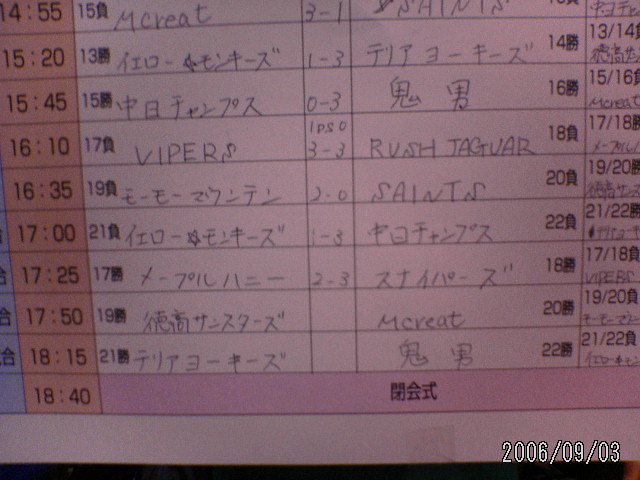 14:55 15負 Mcreat 3-1 SAINTS
15:20 13勝 イエロー☆モンキーズ 1-3 テリアヨーキーズ 14勝 13/14
15:45 15勝 中日チャンプス 0-3 鬼男 16勝 15/16負 Mcreat
16:10 17負 VIPERS 3-3 RUSH JAGUAR 18負 17/18勝
16:35 19負 モーモーマウンテン 2-0 SAINTS 20負 19/20勝
17:00 21負 イエロー☆モンキーズ 1-3 中日チャンプス 22負 21/22勝
合 17:25 17勝 メープルハニー 2-3 スナイパーズ 18勝 17/18負 VIPERS
合 17:50 19勝 徳高サンスターズ Mcreat 20勝 19/20負
合 18:15 21勝 テリアヨーキーズ 鬼男 22勝 21/22負
18:40 閉会式
2006/09/03